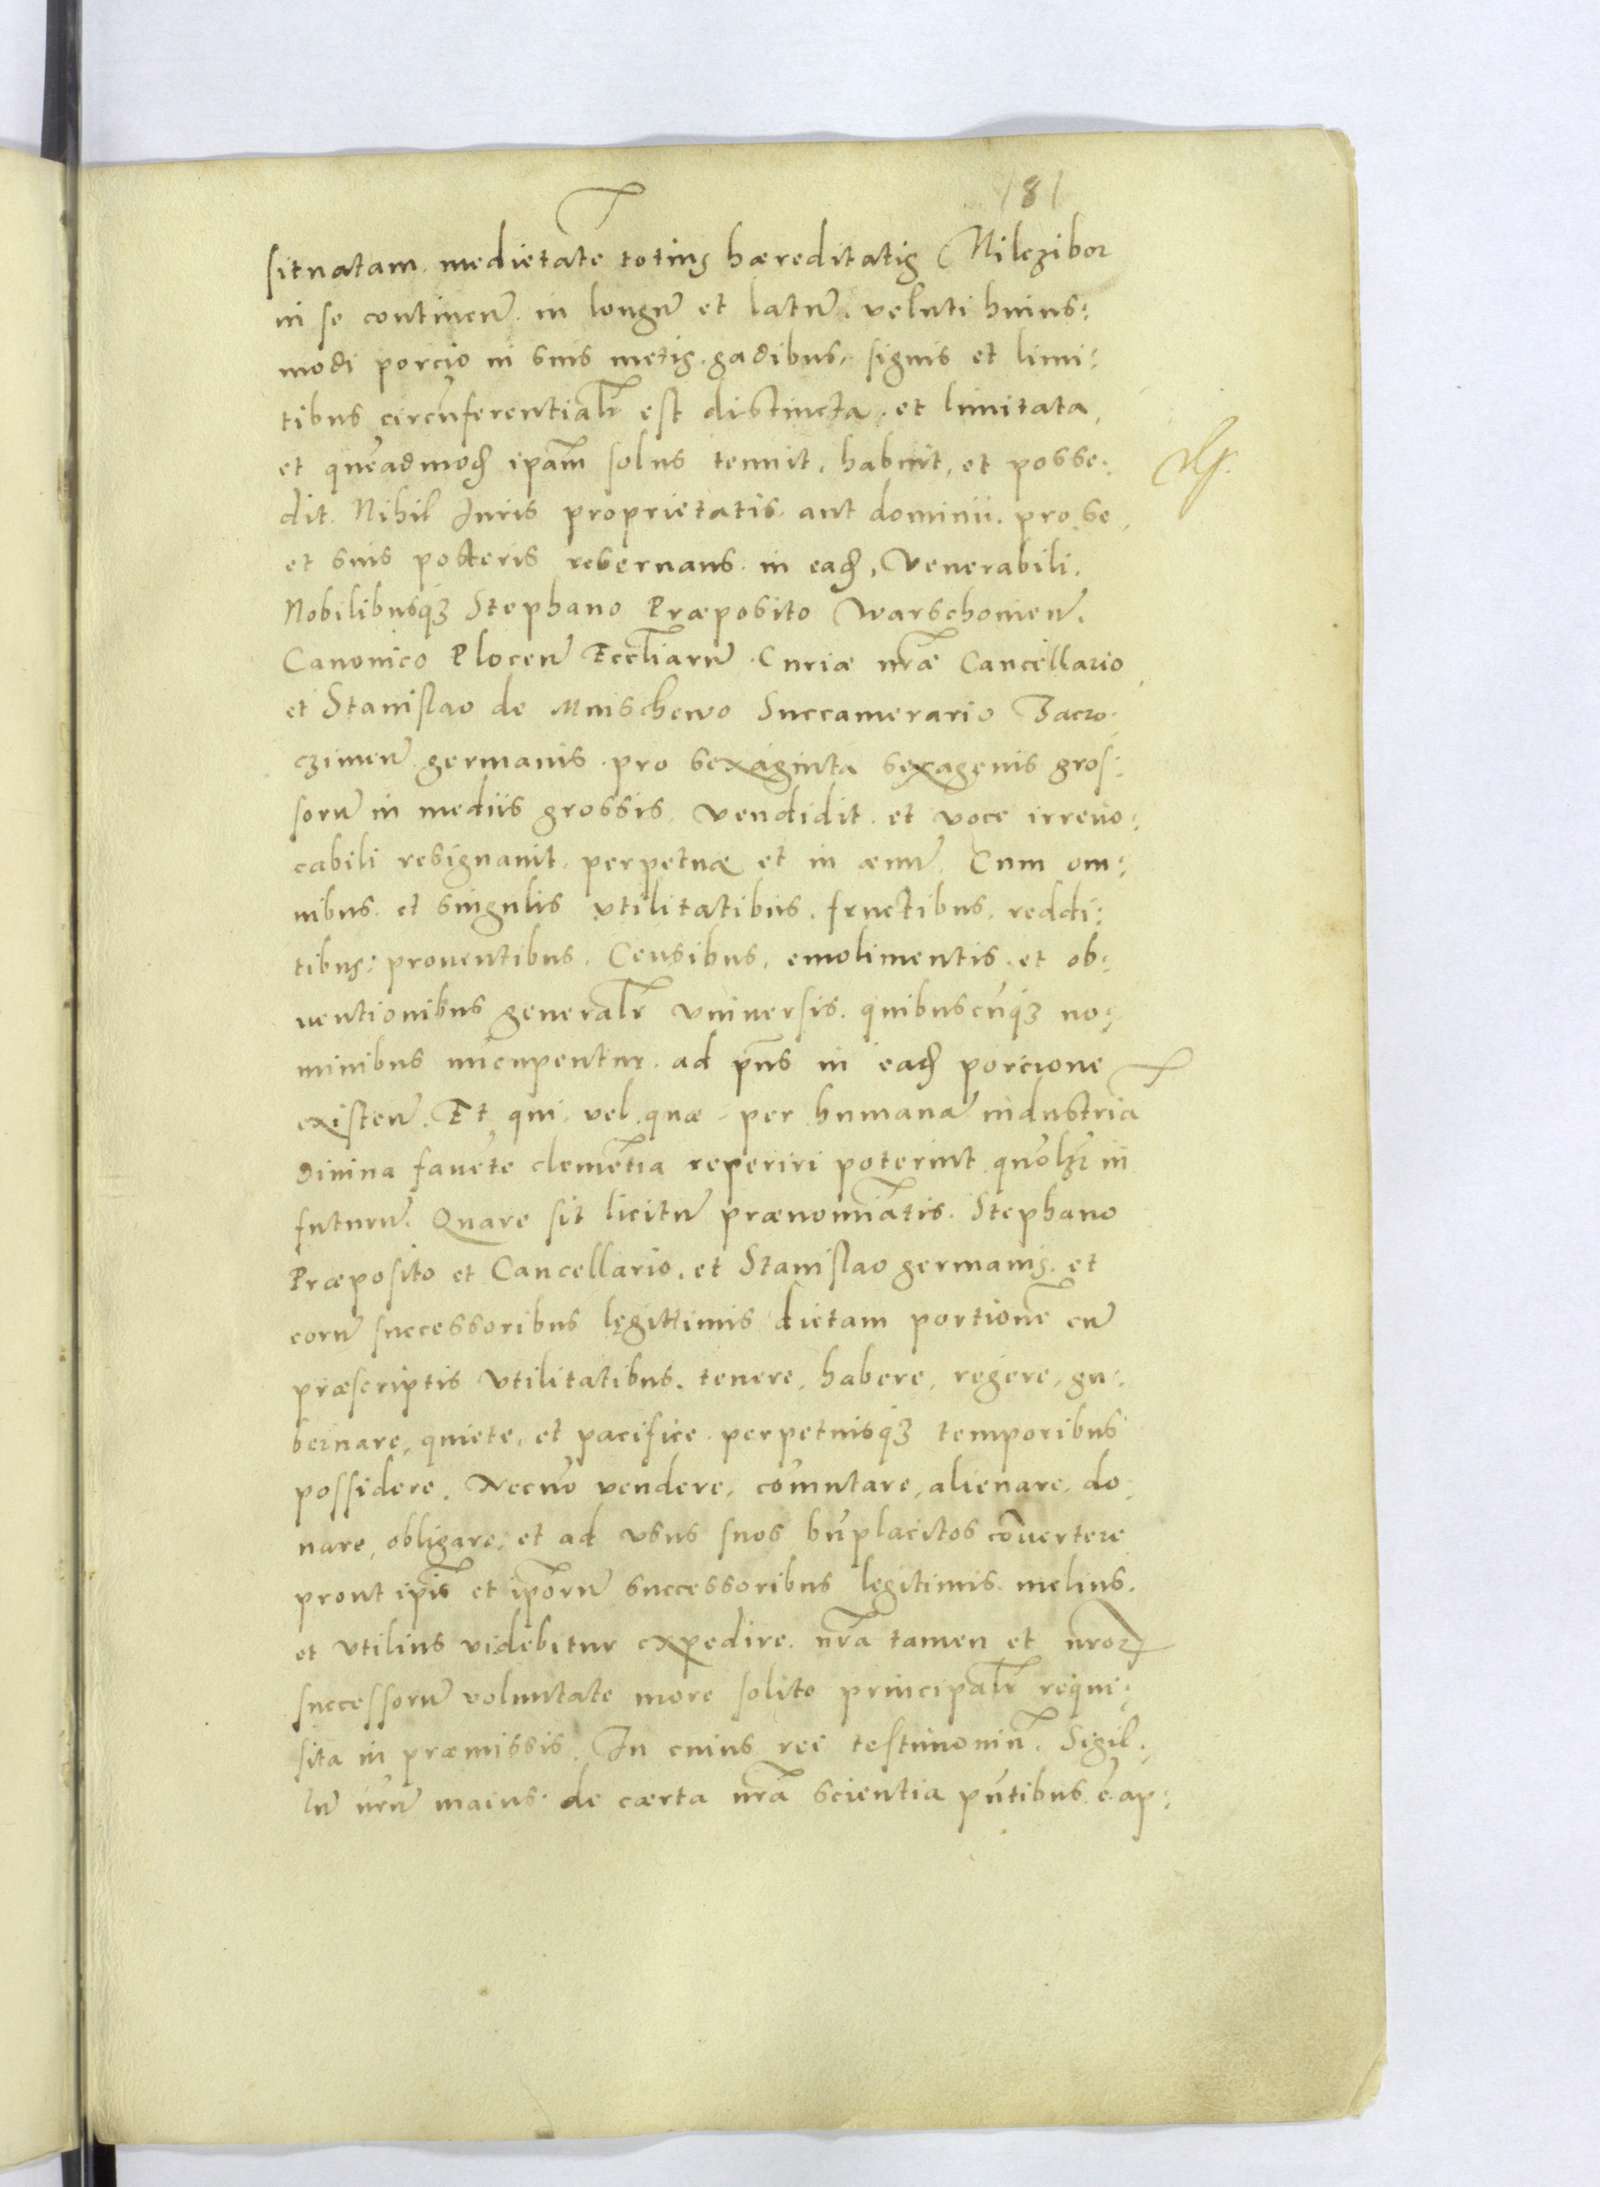 181
situatam. medietatē totius hæreditatis Milczibor
in se continen̄. in longū et latū. veluti huius:
modi porcio in suis metis. gadibus, signis et limi:
tibus circūferentialr̄ est distincta. et limitata,
et quēadmodꝫ ipam̄ solus tenuit, habuit, et posse:
dit. Nihil Iuris proprietatis. aut dominii. pro se,
et suis posteris reservans. in eadꝫ, Venerabili.
Nobilibusqꝫ Stephano Præposito Warschovien̄.
Canonico Plocen̄ Eccliarū̄. Curiæ nr̄æ Cancellario
et Stanislao de Mnischewo Succamerario Zacro:
czimen̄. germanis. pro sexaginta sexagenis gros:
sorū in mediis grossis. vendidit. et voce irrevo:
cabili resignavit. perpetuæ et in ævū. Cum om:
nibus. et singulis vtilitatibus. fructibus. reddi:
tibus: proventibus. Censibus. emolimentis. et ob:
ventionibus generalr̄ vniversis. quibuscūqꝫ no:
minibus nūcupentur. ad pn̄s in eadꝫ porcione
existen̄. Et qui. vel. quæ. per humanā industriā
divina favēte clemētia reperiri poterint quōlꝫ in
futurū. Quare sit licitū prænomiātis. Stephano
Præposito et Cancellario. et Stanislao germanis. et
eorū successoribus legittimis dictam portionē cū
præscriptis vtilitatibus. tenere, habere, regere, gu:
bernare, quiete, et pacifice. perpetuisqꝫ temporibus
possidere. Necnō vendere, com̄utare, alienare, do:
nare, obligare, et ad vsus suos bn̄placitos cōvertere
prout ip̄is et ip̄orū successoribus legitimis. melius.
et vtilius videbitur expedire. nr̄a tamen et nr̄oꝝ
successorū voluntate more solito principalr̄ requi:
sita in præmissis. In cuius rei testimoniū. Sigil:
lū nr̄ū maius. de cærta nr̄a scientia pn̄tibus. ē ap: